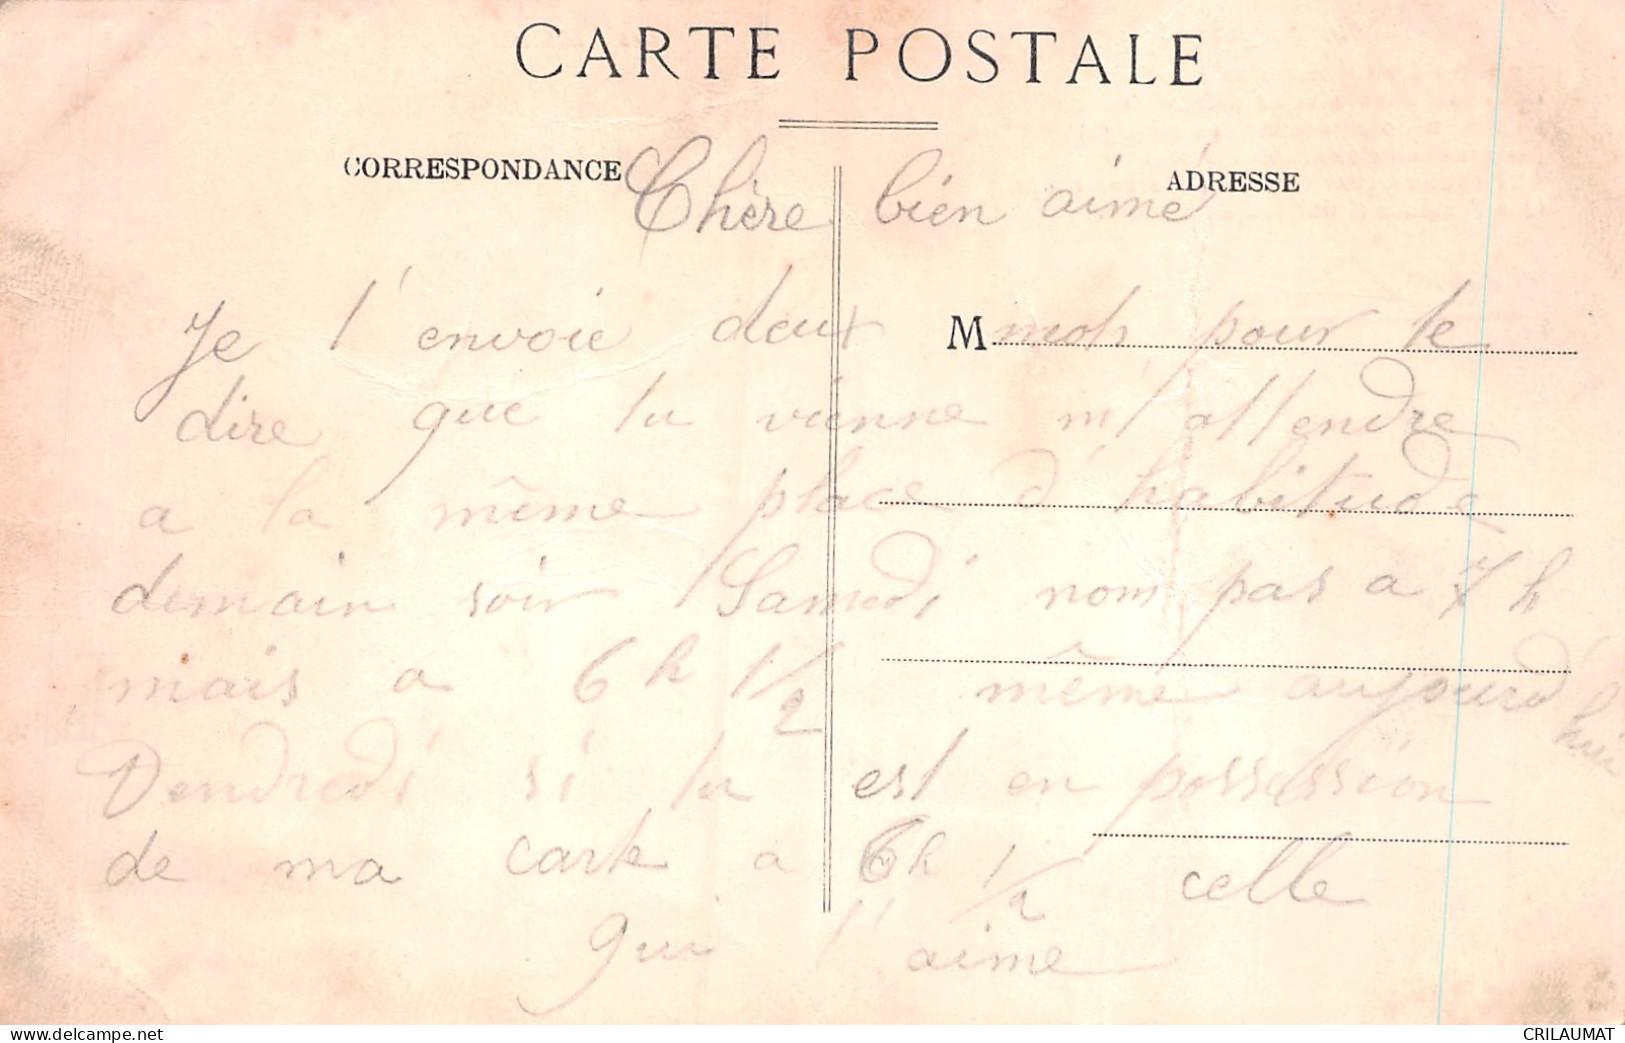 CARTE POSTALE
CORRESPONDANCE
ADRESSE
Chère bien aimé
Je t'envoie deux M mots pour te
dire que tu vienne m'attendre
a la même place d'habitude
demain soir Samedi nom pas a 7 h
mais a 6 h 1/2 même aujourd'hui
Vendredi si tu est en possession
de ma carte a 6 h 1/2 celle
qui t'aime
www.delcampe.net
CRILAUMAT